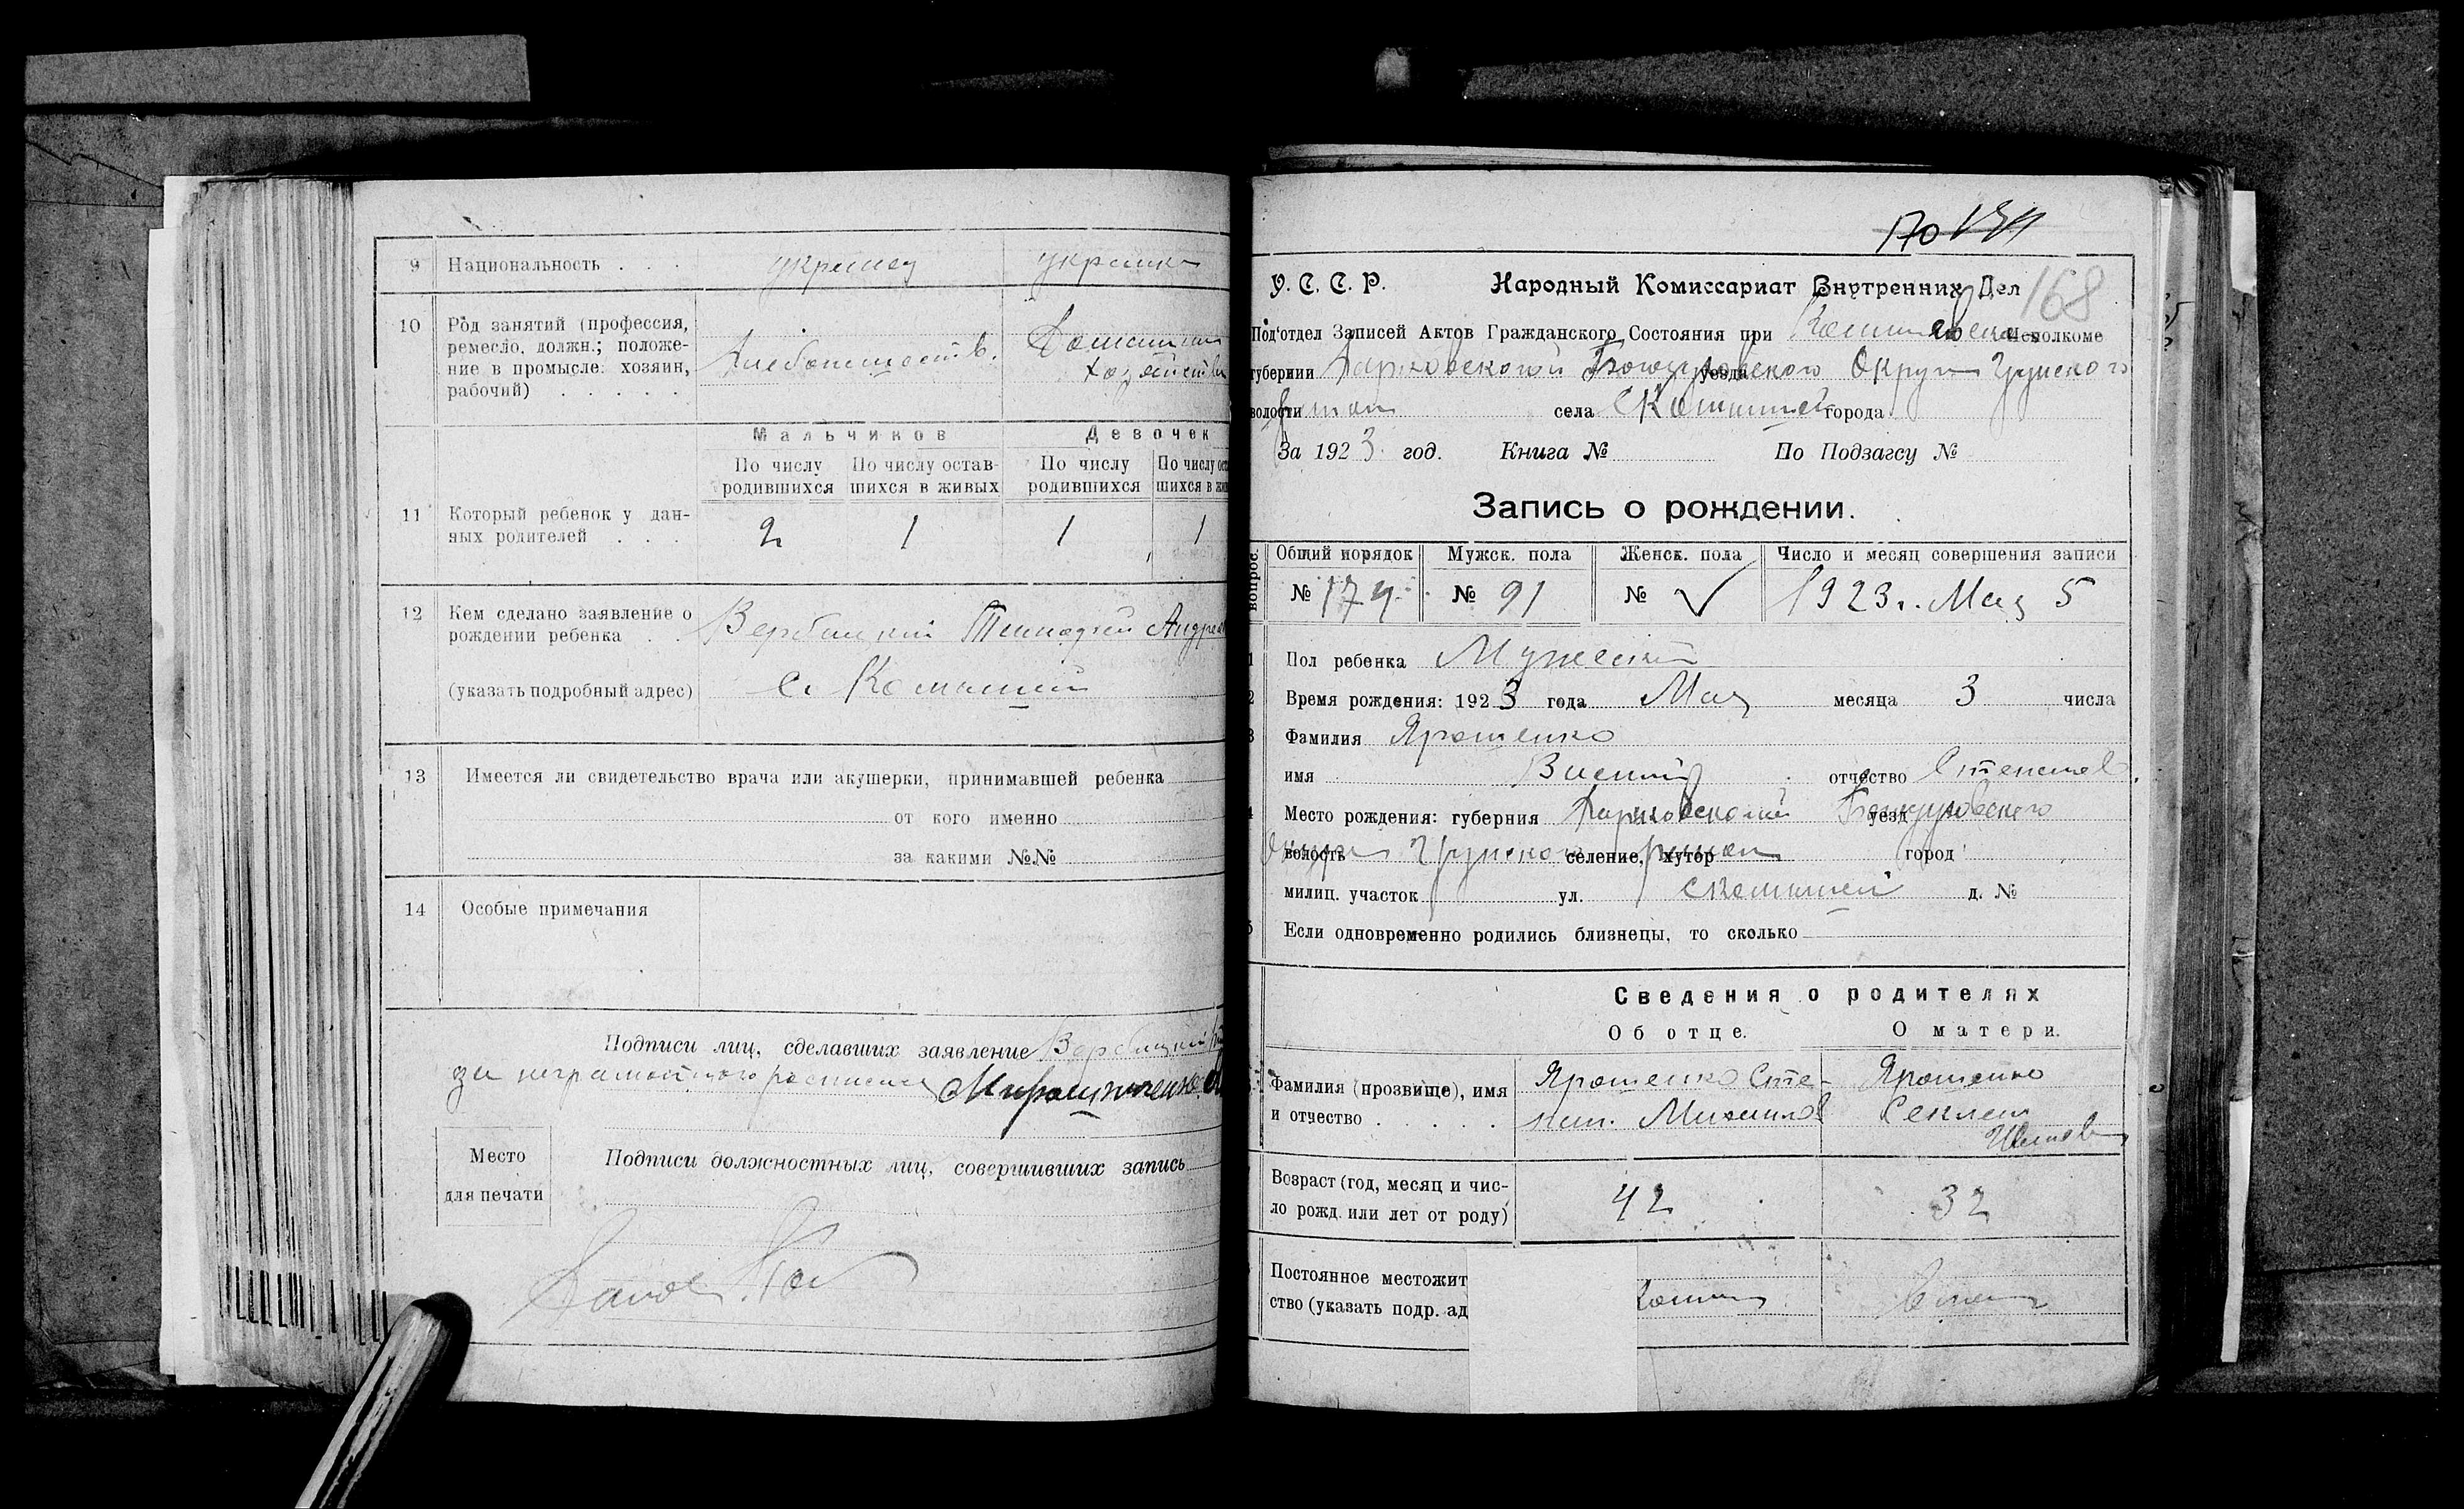 9 Национальность . . . украинец украинка
10 Род занятий (профессия,
ремесло, должн.; положе-
ние в промысле: хозяин,
рабочий) . . . . .
Хлебопашеств. Домашнее
хозяйство
11 Который ребенок у дан-
ных родителей . . .
Мальчиков Девочек
По числу родившихся По числу остав-шихся в живых По числу родившихся По числу ос
шихся в жи
2 1 1 1
12 Кем сделано заявление о
рождении ребенка . .
Вербицкий Андрее
(указать подробный адрес) с. Комыши
13 Имеется ли свидетельство врача или акушерки, принимавшей ребенка
от кого именно
за какими №№
14 Особые примечания
Подписи лиц, сделавших заявление Вербицкий
за неграмотного расписался Мирошниченко
Место
для печати
Подписи должностных лиц, совершивших запись
170
168
У. С. С. Р. Народный Комиссариат Внутренних Дел
Под'отдел Записей Актов Гражданского Состояния при Исполкоме
губернии Харьковской Богодуховского уезда Округа Грунского
волости района села Комышей города
За 1923 год. Книга № По Подзагсу №
Запись о рождении.
вопрос. Общий порядок Мужск. пола Женск. пола Число и месяц совершения записи
№ 174 № 91 № 1923 г. Мая 5
1 Пол ребенка Мужеский
2 Время рождения: 1923 года Мая месяца 3 числа
3 Фамилия Ярошенко
имя Висилий отчество Степанов.
4 Место рождения: губерния Харьковской уезд Богодуховского
волость Округа Грунского селение, хутор район город
милиц. участок ул. с Комышей д. №
5 Если одновременно родились близнецы, то сколько
Сведения о родителях
Об отце. О матери.
Фамилия (прозвище), имя
и отчество . . . . .
Ярошенко Сте-
пан. Михайлов
Ярошенко
Секлета
Иванова
Возраст (год, месяц и чис-
ло рожд. или лет от роду)
42 32
Постоянное местожит
ство (указать подр. ад